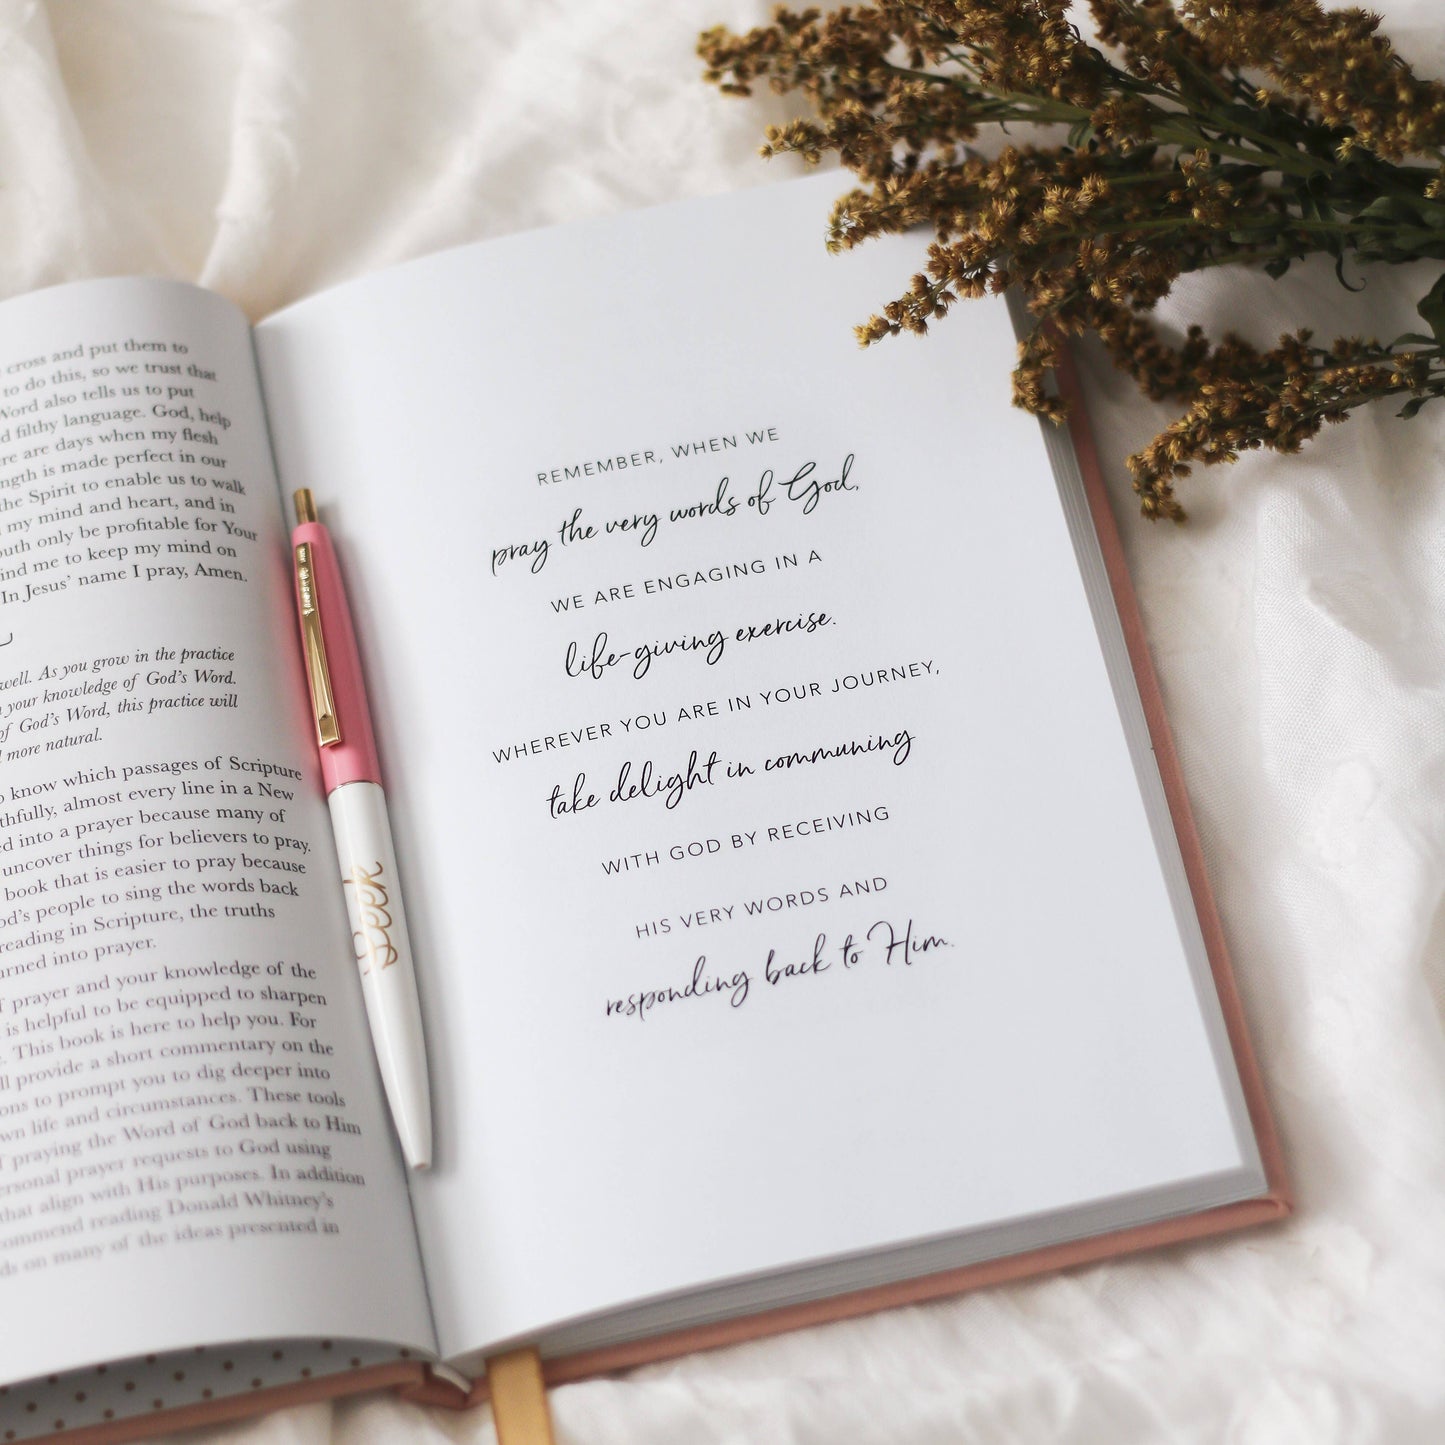 cross and put them to
to do this, so we trust that
Word also tells us to put
filthy language. God, help
are days when my flesh
is made perfect in our
the Spirit to enable us to walk
my mind and heart, and in
only be profitable for Your
me to keep my mind on
In Jesus' name I pray, Amen.
well. As you grow in the practice
your knowledge of God's Word.
of God's Word, this practice will
more natural.
know which passages of Scripture
almost every line in a New
into a prayer because many of
uncover things for believers to pray.
book that is easier to pray because
people to sing the words back
reading in Scripture, the truths
into prayer.
prayer and your knowledge of the
is helpful to be equipped to sharpen
This book is here to help you. For
provide a short commentary on the
to prompt you to dig deeper into
life and circumstances. These tools
praying the Word of God back to Him
prayer requests to God using
that align with His purposes. In addition
reading Donald Whitney's
on many of the ideas presented in
Seek
REMEMBER, WHEN WE
pray the very words of God,
WE ARE ENGAGING IN A
life-giving exercise.
WHEREVER YOU ARE IN YOUR JOURNEY,
take delight in communing
WITH GOD BY RECEIVING
HIS VERY WORDS AND
responding back to Him.